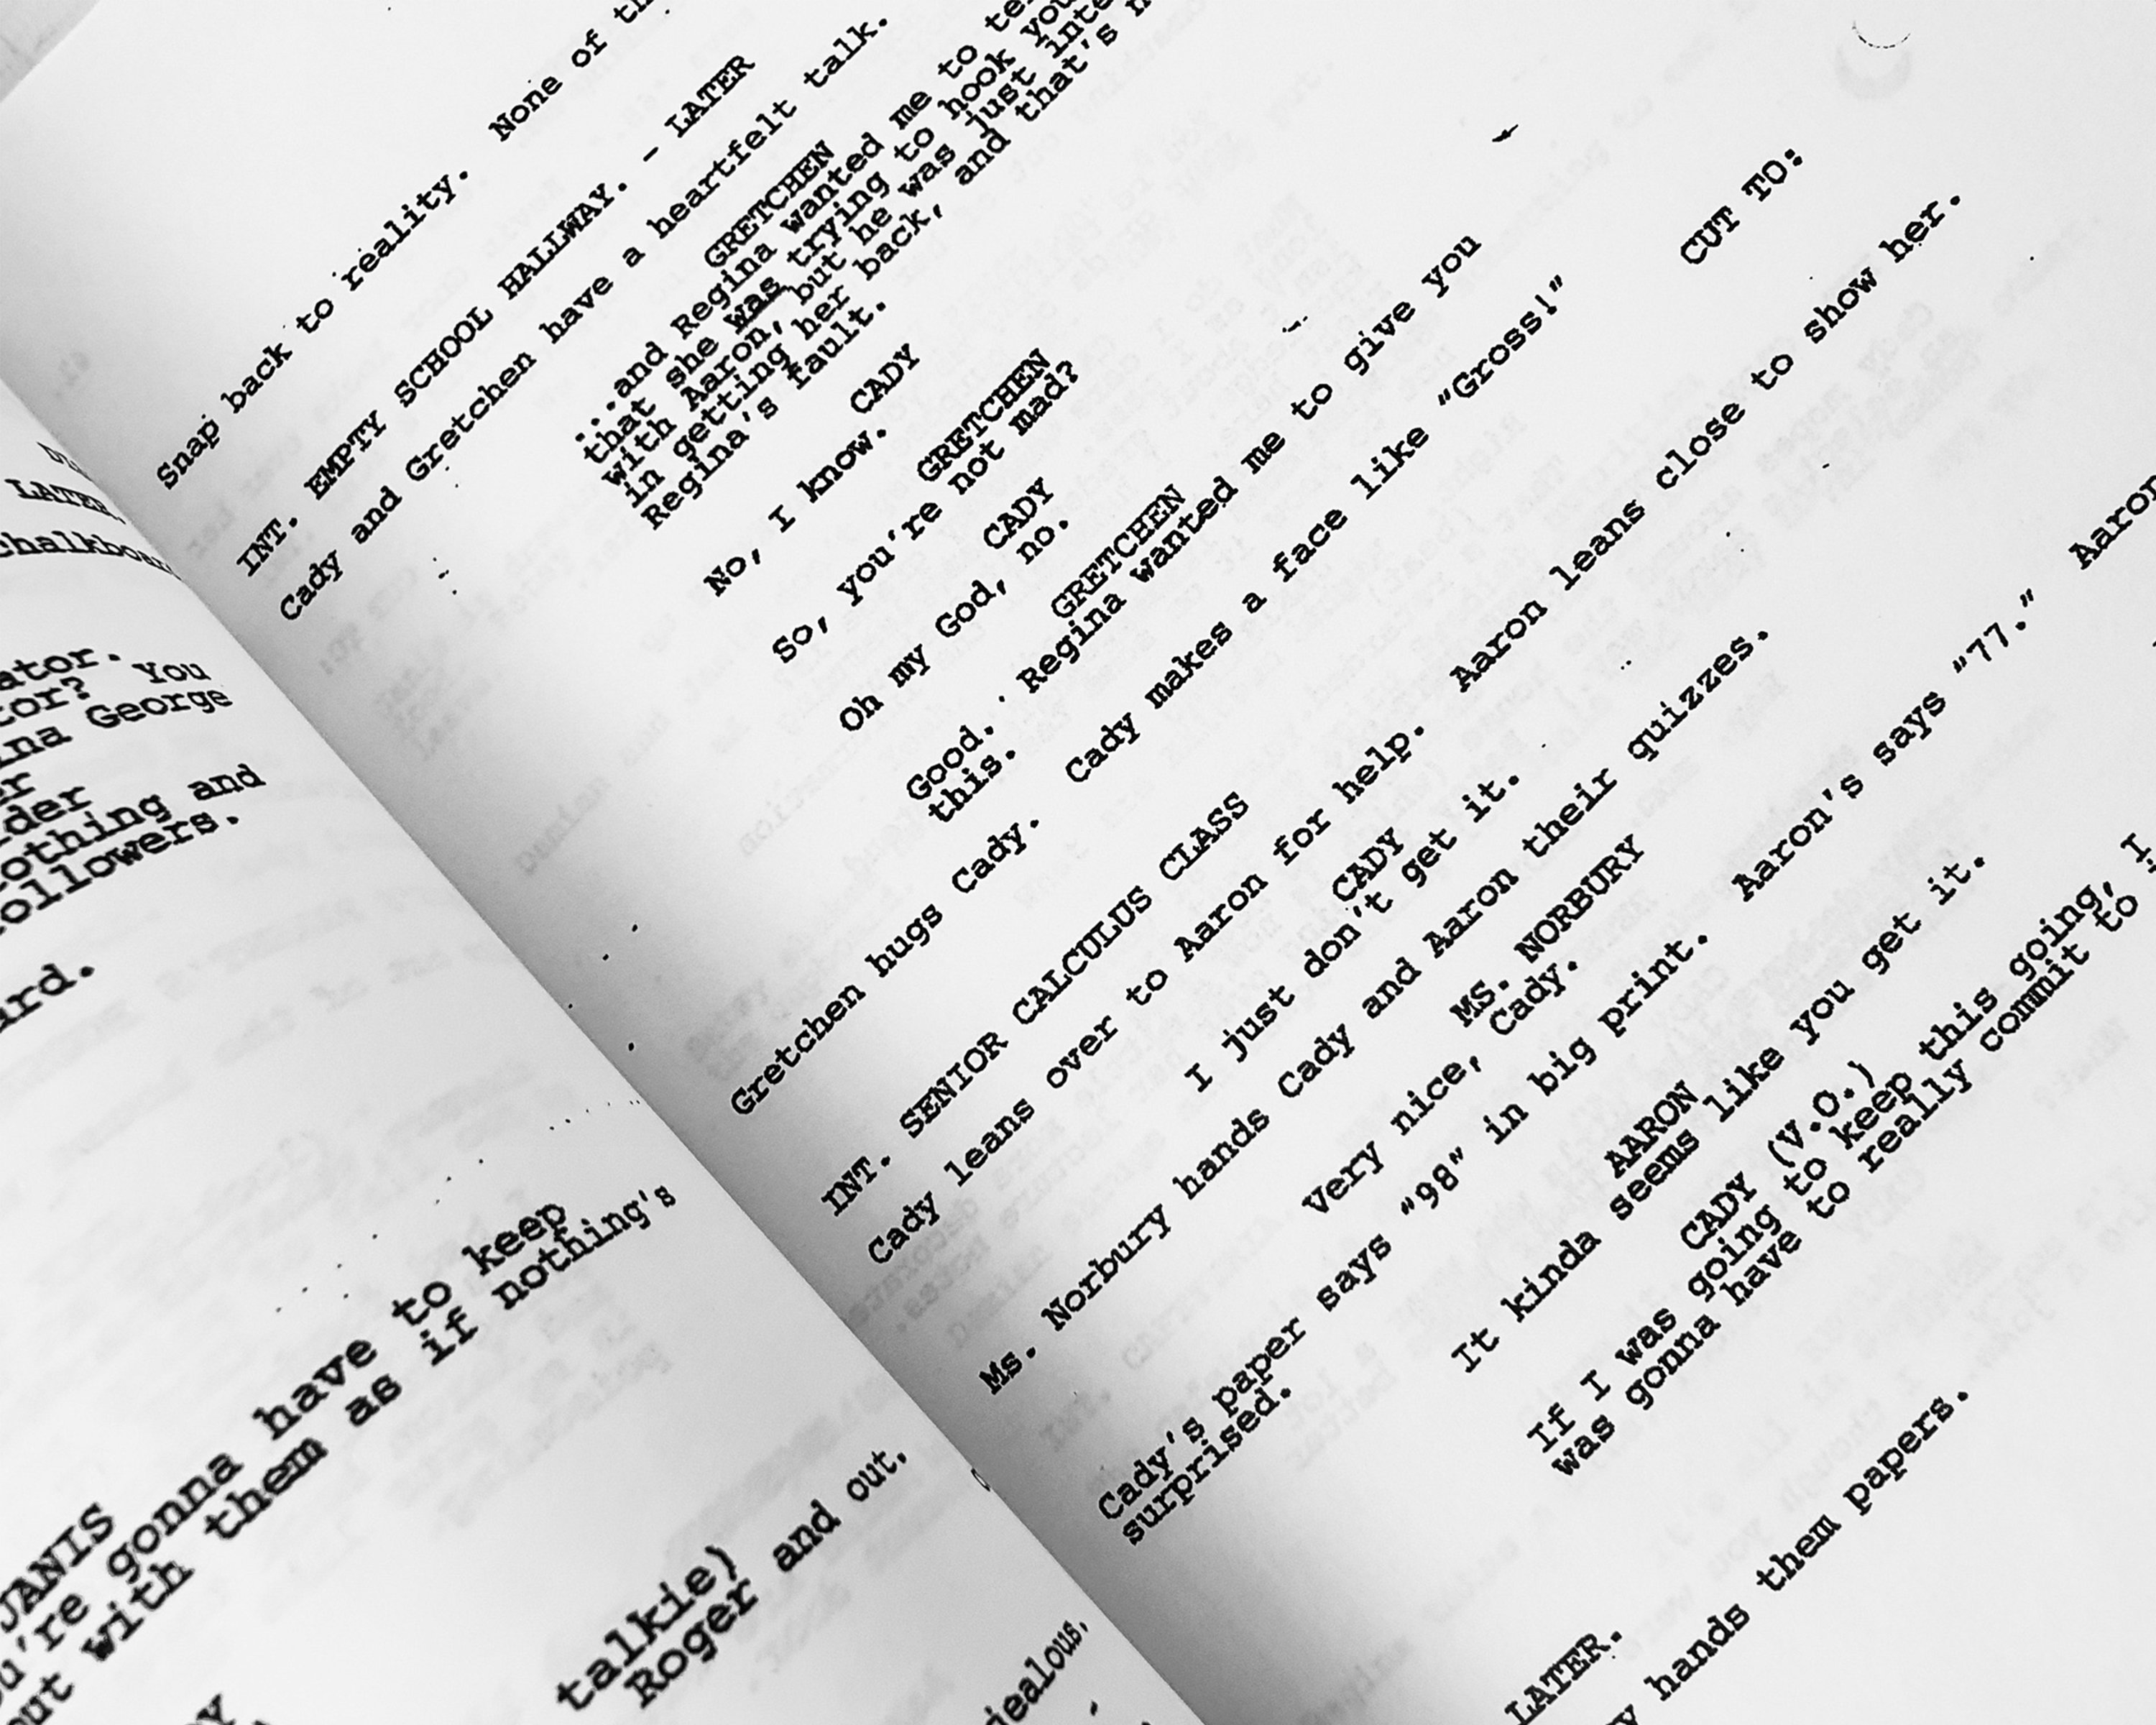 LATER.
ator.
tor? You
ina George
er
der
othing and
ollowers.
ard.
JANIS
gonna have to keep
out with them as if nothing's
talkie)
Roger and out.
jealous,
Snap back to reality. None of
INT. EMPTY SCHOOL HALLWAY. - LATER
Cady and Gretchen have a heartfelt talk.
GRETCHEN
...and Regina wanted me to
that she was trying to hook you
with Aaron, but he was just
in getting her back, and that's
Regina's fault.
CADY
No, I know.
GRETCHEN
So, you're not mad?
CADY
Oh my God, no.
GRETCHEN
Good. Regina wanted me to give you
this.
Gretchen hugs Cady. Cady makes a face like "Gross!"
CUT TO:
INT. SENIOR CALCULUS CLASS
Cady leans over to Aaron for help. Aaron leans close to show her.
CADY
I just don't get it.
Ms. Norbury hands Cady and Aaron their quizzes.
MS. NORBURY
Very nice, Cady.
Cady's paper says "98" in big print. Aaron's says "77." Aaron
surprised.
AARON
It kinda seems like you get it.
CADY (V.O.)
If I was going to keep this going, I
was gonna have to really commit to
LATER.
hands them papers.